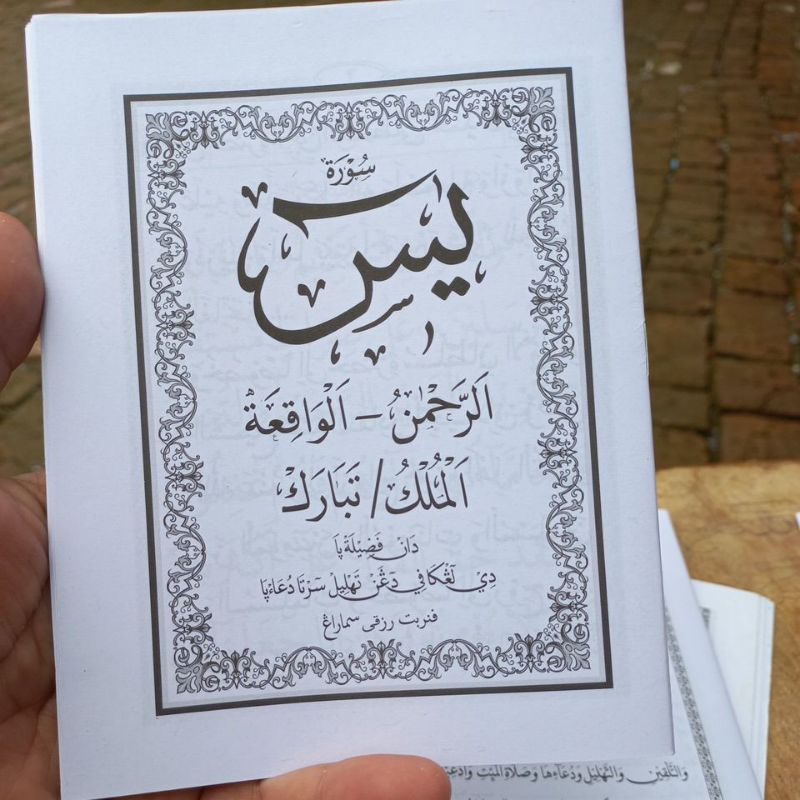 سُوْرَة
يس
اَلرَّحْمٰنُ – اَلْوَاقِعَةُ
اَلْمُلْكُ / تَبَارَكَ
دَانْ فَضِيْلَةْ پَا
دِيْ لَڠْكَافِيْ دَڠَنْ تَهْلِيْل سَرْتَا دُعَاءْ پَا
فنربت رزقى سماراڠ
وَالتَّلْقِيْنِ وَالتَّهْلِيْلِ وَدُعَاءِهَا وَصَلَاةِ الْمَيِّتِ